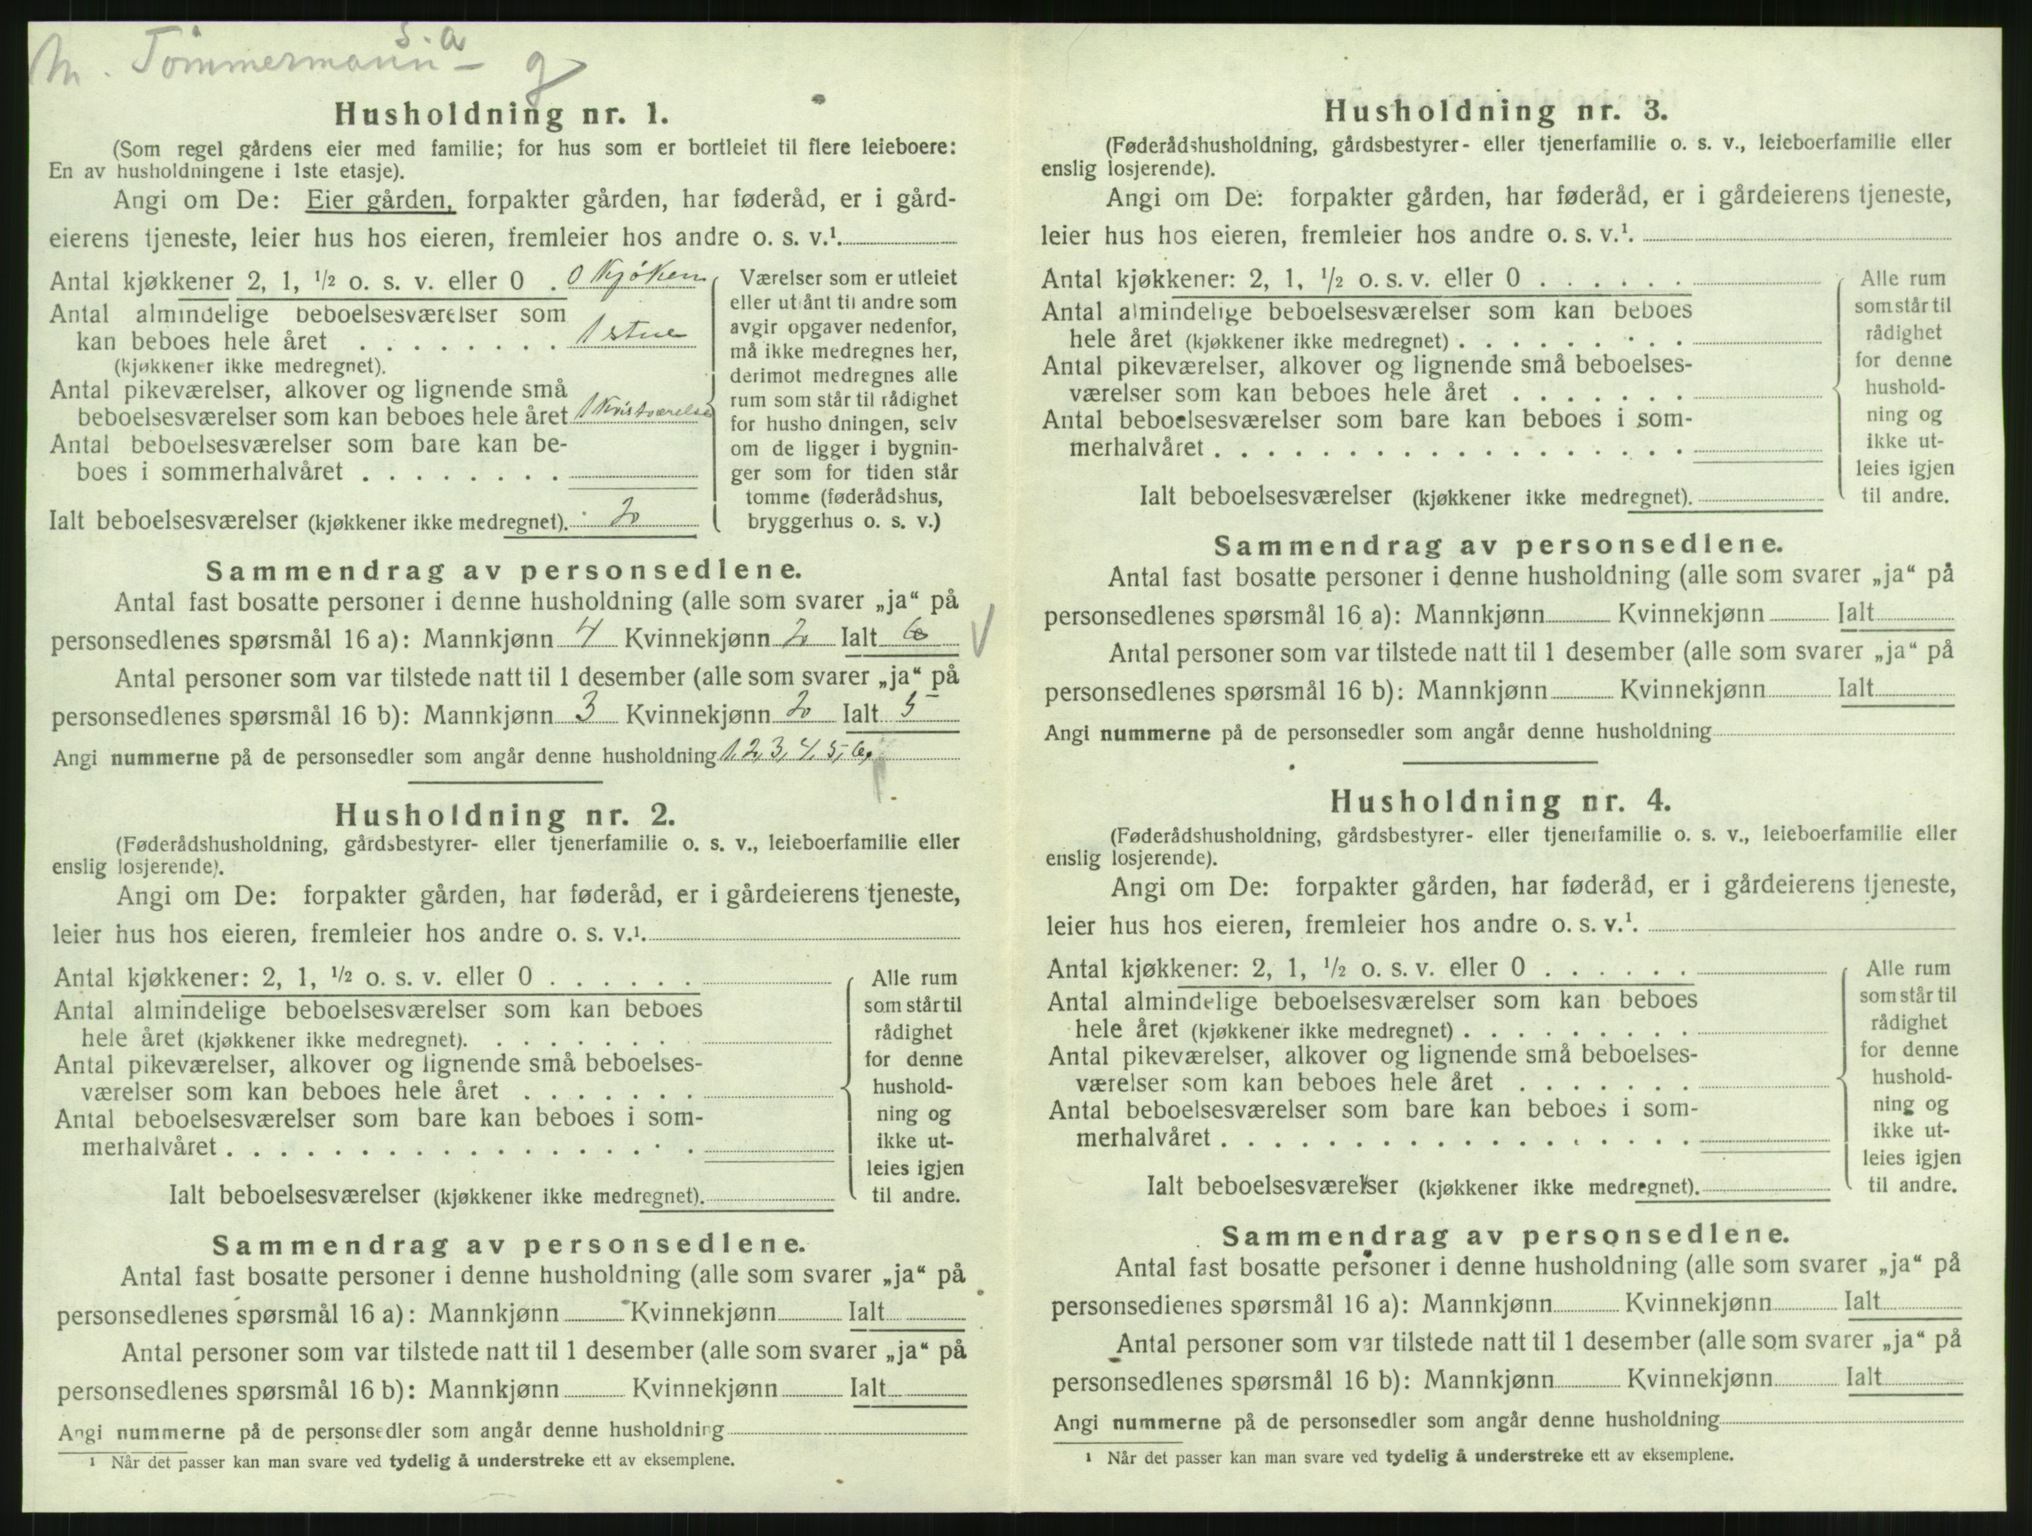 M. Tømmermann – s.a g
Husholdning nr. 1.
(Som regel gårdens eier med familie; for hus som er bortleiet til flere leieboere:
En av husholdningene i 1ste etasje).
Angi om De: Eier gården, forpakter gården, har føderåd, er i gård-
eierens tjeneste, leier hus hos eieren, fremleier hos andre o. s. v.¹
Antal kjøkkener 2, 1, ½ o. s. v. eller 0 . 0 Kjøken
Antal almindelige beboelsesværelser som
kan beboes hele året . . . . . . . . 1 stue
(kjøkkener ikke medregnet).
Antal pikeværelser, alkover og lignende små
beboelsesværelser som kan beboes hele året 1 Kvistværelse
Antal beboelsesværelser som bare kan be-
boes i sommerhalvåret . . . . . . . .
Ialt beboelsesværelser (kjøkkener ikke medregnet). 2
Værelser som er utleiet
eller utlånt til andre som
avgir opgaver nedenfor,
må ikke medregnes her,
derimot medregnes alle
rum som står til rådighet
for husholdningen, selv
om de ligger i bygnin-
ger som for tiden står
tomme (føderådshus,
bryggerhus o. s. v.)
Sammendrag av personsedlene.
Antal fast bosatte personer i denne husholdning (alle som svarer „ja“ på
personsedlenes spørsmål 16 a): Mannkjønn 4 Kvinnekjønn 2 Ialt 6 V
Antal personer som var tilstede natt til 1 desember (alle som svarer „ja“ på
personsedlenes spørsmål 16 b): Mannkjønn 3 Kvinnekjønn 2 Ialt 5
Angi nummerne på de personsedler som angår denne husholdning 1,2,3,4,5,6,
Husholdning nr. 2.
(Føderådshusholdning, gårdsbestyrer- eller tjenerfamilie o. s. v., leieboerfamilie eller
enslig losjerende).
Angi om De: forpakter gården, har føderåd, er i gårdeierens tjeneste,
leier hus hos eieren, fremleier hos andre o. s. v.¹.
Antal kjøkkener: 2, 1, ½ o. s. v. eller 0 . . . . . .
Antal almindelige beboelsesværelser som kan beboes
hele året (kjøkkener ikke medregnet). . . . . . . .
Antal pikeværelser, alkover og lignende små beboelses-
værelser som kan beboes hele året . . . . . . .
Antal beboelsesværelser som bare kan beboes i som-
merhalvåret . . . . . . . . . . . . . . . . . .
Ialt beboelsesværelser (kjøkkener ikke medregnet).
Alle rum
som står til
rådighet
for denne
hushold-
ning og
ikke ut-
leies igjen
til andre.
Sammendrag av personsedlene.
Antal fast bosatte personer i denne husholdning (alle som svarer „ja“ på
personsedlenes spørsmål 16 a): Mannkjønn Kvinnekjønn Ialt
Antal personer som var tilstede natt til 1 desember (alle som svarer „ja“ på
personsedlenes spørsmål 16 b): Mannkjønn Kvinnekjønn Ialt
Angi nummerne på de personsedler som angår denne husholdning
¹ Når det passer kan man svare ved tydelig å understreke ett av eksemplene.
Husholdning nr. 3.
(Føderådshusholdning, gårdsbestyrer- eller tjenerfamilie o. s. v., leieboerfamilie eller
enslig losjerende).
Angi om De: forpakter gården, har føderåd, er i gårdeierens tjeneste,
leier hus hos eieren, fremleier hos andre o. s. v.¹.
Antal kjøkkener: 2, 1, ½ o. s. v. eller 0 . . . . . .
Antal almindelige beboelsesværelser som kan beboes
hele året (kjøkkener ikke medregnet) . . . . . . . . .
Antal pikeværelser, alkover og lignende små beboelses-
værelser som kan beboes hele året . . . . . . .
Antal beboelsesværelser som bare kan beboes i som-
merhalvåret . . . . . . . . . . . . . . . . . .
Ialt beboelsesværelser (kjøkkener ikke medregnet).
Alle rum
som står til
rådighet
for denne
hushold-
ning og
ikke ut-
leies igjen
til andre.
Sammendrag av personsedlene.
Antal fast bosatte personer i denne husholdning (alle som svarer „ja“ på
personsedlenes spørsmål 16 a): Mannkjønn Kvinnekjønn Ialt
Antal personer som var tilstede natt til 1 desember (alle som svarer „ja“ på
personsedlenes spørsmål 16 b): Mannkjønn Kvinnekjønn Ialt
Angi nummerne på de personsedler som angår denne husholdning
Husholdning nr. 4.
(Føderådshusholdning, gårdsbestyrer- eller tjenerfamilie o. s. v., leieboerfamilie eller
enslig losjerende).
Angi om De: forpakter gården, har føderåd, er i gårdeierens tjeneste,
leier hus hos eieren, fremleier hos andre o. s. v.¹.
Antal kjøkkener: 2, 1, ½ o. s. v. eller 0 . . . . . .
Antal almindelige beboelsesværelser som kan beboes
hele året (kjøkkener ikke medregnet) . . . . . . . . .
Antal pikeværelser, alkover og lignende små beboelses-
værelser som kan beboes hele året . . . . . . .
Antal beboelsesværelser som bare kan beboes i som-
merhalvåret . . . . . . . . . . . . . . . . . .
Ialt beboelsesværelser (kjøkkener ikke medregnet).
Alle rum
som står til
rådighet
for denne
hushold-
ning og
ikke ut-
leies igjen
til andre.
Sammendrag av personsedlene.
Antal fast bosatte personer i denne husholdning (alle som svarer „ja“ på
personsedlenes spørsmål 16 a): Mannkjønn Kvinnekjønn Ialt
Antal personer som var tilstede natt til 1 desember (alle som svarer „ja“ på
personsedlenes spørsmål 16 b): Mannkjønn Kvinnekjønn Ialt
Angi nummerne på de personsedler som angår denne husholdning
¹ Når det passer kan man svare ved tydelig å understreke ett av eksemplene.